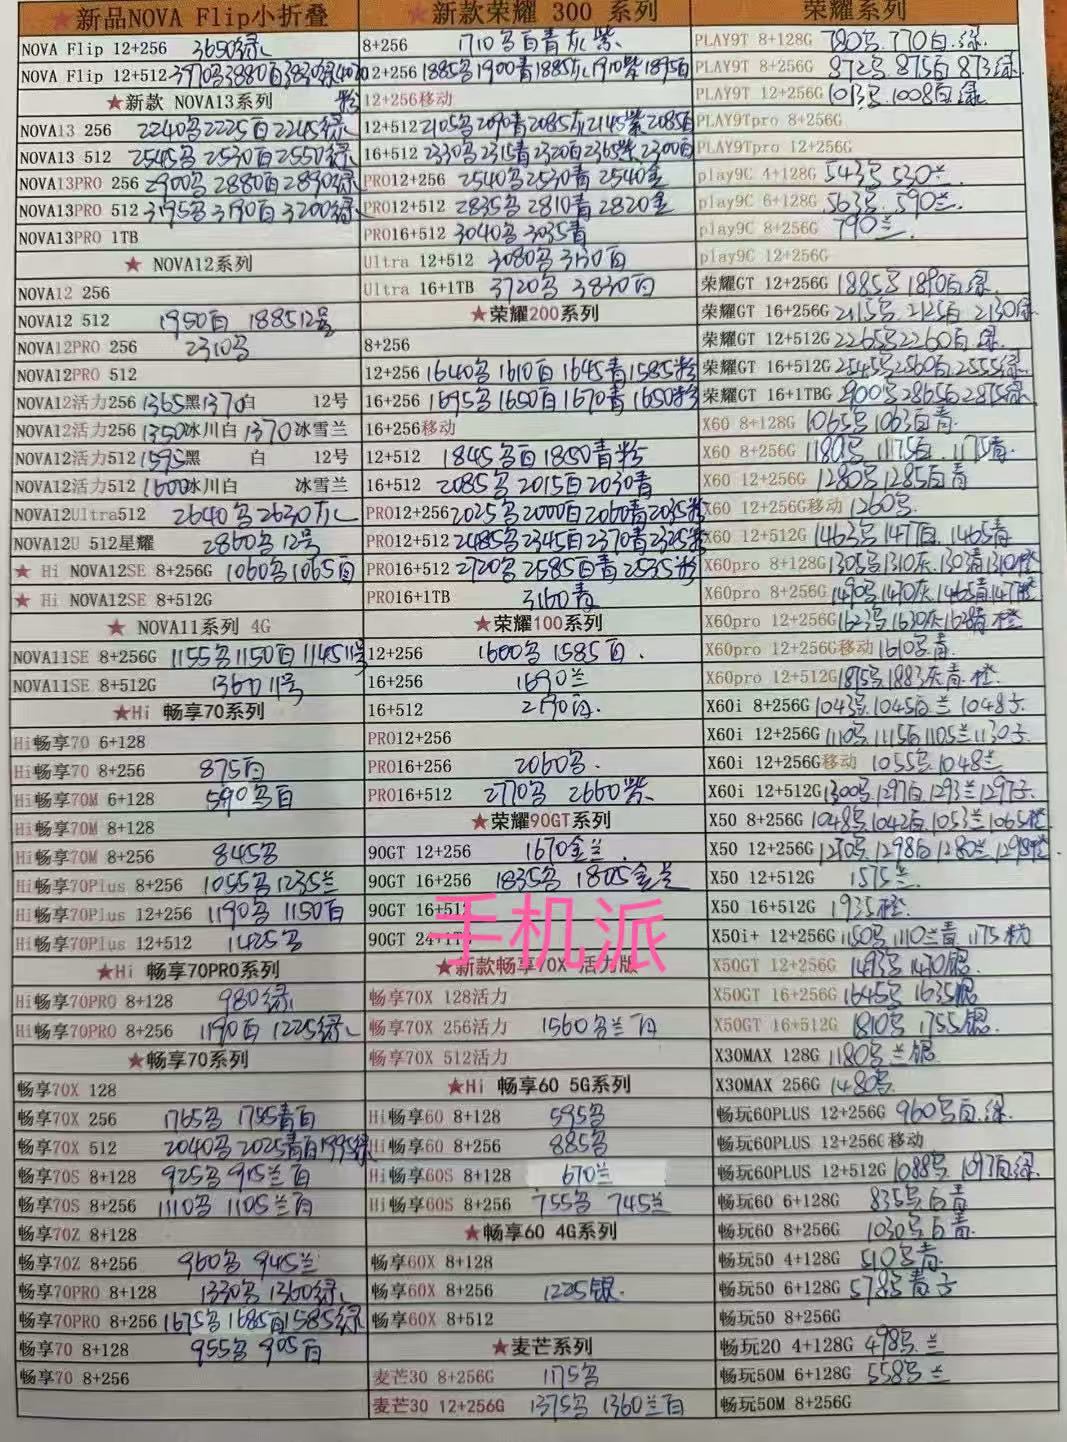 ★新品NOVA Flip小折叠
NOVA Flip 12+256 3650绿
NOVA Flip 12+512 3970黑3880白3830绿4020粉
★新款 NOVA13系列
NOVA13 256 2240黑2225白2245绿
NOVA13 512 2545黑2530白2550绿
NOVA13PRO 256 2900黑2880白2890绿
NOVA13PRO 512 3195黑3190白3200绿
NOVA13PRO 1TB
★ NOVA12系列
NOVA12 256
NOVA12 512 1950白 188512号
NOVA12PRO 256 2310黑
NOVA12PRO 512
NOVA12活力256 1365黑1370白 12号
NOVA12活力256 1350冰川白 1370冰雪兰
NOVA12活力512 1595黑 白 12号
NOVA12活力512 1600冰川白 冰雪兰
NOVA12Ultra512 2640黑2630灰
NOVA12U 512星耀 2860黑12号
★ Hi NOVA12SE 8+256G 1060黑1065白
★ Hi NOVA12SE 8+512G
★ NOVA11系列 4G
NOVA11SE 8+256G 1155黑1150白114511号
NOVA11SE 8+512G 1360 11号
★Hi 畅享70系列
Hi畅享70 6+128
Hi畅享70 8+256 875白
Hi畅享70M 6+128 590黑白
Hi畅享70M 8+128
Hi畅享70M 8+256 845黑
Hi畅享70Plus 8+256 1055黑1235兰
Hi畅享70Plus 12+256 1190黑 1150白
Hi畅享70Plus 12+512 1425黑
★Hi 畅享70PRO系列
Hi畅享70PRO 8+128 980绿
Hi畅享70PRO 8+256 1190白 1225绿
★畅享70系列
畅享70X 128
畅享70X 256 1765黑 1755青白
畅享70X 512 2040黑2025青白1995绿
畅享70S 8+128 925黑 915兰白
畅享70S 8+256 1110黑 1105兰白
畅享70Z 8+128
畅享70Z 8+256 960黑 945兰
畅享70PRO 8+128 1330黑1360绿
畅享70PRO 8+256 1675黑1685白1585绿
畅享70 8+128 955黑 905白
畅享70 8+256
★新款荣耀 300 系列
8+256 1710黑白青灰紫
12+256 1885黑1900青1885灰1910紫1895白
12+256移动
12+512 2105黑2090青2085灰2145紫2085白
16+512 2330黑2315青2320白2365紫2300白
PRO12+256 2540黑2530青 2540金
PRO12+512 2835黑 2810青 2820金
PRO16+512 3040黑 3035青
Ultra 12+512 3080黑 3130白
Ultra 16+1TB 3720黑 3830白
★荣耀200系列
8+256
12+256 1640黑1610白1645青1585粉
16+256 1695黑1650白1670青1650粉
16+256移动
12+512 1845黑白1850青粉
16+512 2085黑2015白2030青
PRO12+256 2025黑2000白2060青2035粉
PRO12+512 2485黑2345白2370青2325粉
PRO16+512 2720黑2585白青2535粉
PRO16+1TB 3160青
★荣耀100系列
12+256 1600黑1585白
16+256 1690兰
16+512 2190白
PRO12+256
PRO16+256 2060黑
PRO16+512 2770黑 2660紫
★荣耀90GT系列
90GT 12+256 1670金兰
90GT 16+256 1835黑 1805金兰
90GT 16+512
90GT 24+1TB
手机派
★新款畅享70X 活力版
畅享70X 128活力
畅享70X 256活力 1560黑兰白
畅享70X 512活力
★Hi 畅享60 5G系列
Hi畅享60 8+128 595黑
Hi畅享60 8+256 885黑
Hi畅享60S 8+128 670兰
Hi畅享60S 8+256 755黑 745兰
★畅享60 4G系列
畅享60X 8+128
畅享60X 8+256 1225银
畅享60X 8+512
★麦芒系列
麦芒30 8+256G 1175黑
麦芒30 12+256G 1375黑 1360兰白
荣耀系列
PLAY9T 8+128G 780黑770白.绿
PLAY9T 8+256G 872黑.875白873绿
PLAY9T 12+256G 1013黑.1008白绿
PLAY9Tpro 8+256G
PLAY9Tpro 12+256G
play9C 4+128G 543黑530兰
play9C 6+128G 563黑.590兰
play9C 8+256G 790兰
play9C 12+256G
荣耀GT 12+256G 1885黑1890白绿
荣耀GT 16+256G 2115黑.2125白 2130绿
荣耀GT 12+512G 2265黑2260白.绿
荣耀GT 16+512G 2545黑2560白2555绿
荣耀GT 16+1TBG 2900黑2865白2875绿
X60 8+128G 1065黑1063白青
X60 8+256G 1180黑1175白.1175青
X60 12+256G 1280黑1285白青
X60 12+256G移动 1260黑
X60 12+512G 1463黑1477白.1465青
X60pro 8+128G 1305黑1310灰.1303青1310橙
X60pro 8+256G 1470黑1470灰1465青1477橙
X60pro 12+256G 1623黑1630灰1628青橙
X60pro 12+256G移动 1610黑青
X60pro 12+512G 1875黑1883灰青.橙
X60i 8+256G 1043黑1045白兰 1048子
X60i 12+256G 1110黑1115白1105兰1130子
X60i 12+256G移动 1055黑1048兰
X60i 12+512G 1300黑1297白1293兰1297子
X50 8+256G 1048黑1042白1053兰1065橙
X50 12+256G 1270黑1298白1280兰1298橙
X50 12+512G 1575兰
X50 16+512G 1935橙
X50i+ 12+256G 1150黑1110兰青 1175粉
X50GT 12+256G 1493黑1470银
X50GT 16+256G 1645黑1635银
X50GT 16+512G 1810黑1755银
X30MAX 128G 1180黑兰银
X30MAX 256G 1480黑
畅玩60PLUS 12+256G 960黑白.绿
畅玩60PLUS 12+256G移动
畅玩60PLUS 12+512G 1088黑1097白绿
畅玩60 6+128G 835黑白青
畅玩60 8+256G 1030黑白青
畅玩50 4+128G 510黑青
畅玩50 6+128G 578黑青子
畅玩50 8+256G
畅玩20 4+128G 498黑.兰
畅玩50M 6+128G 558黑兰
畅玩50M 8+256G